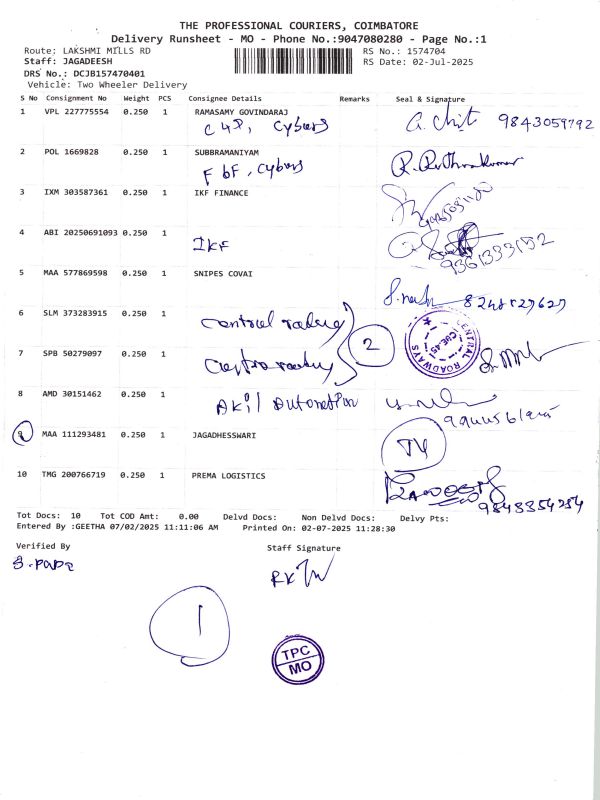 THE PROFESSIONAL COURIERS, COIMBATORE
Delivery Runsheet - MO - Phone No.:9047080280 - Page No.:1
Route: LAKSHMI MILLS RD RS No.: 1574704
Staff: JAGADEESH RS Date: 02-Jul-2025
DRS No.: DCJB157470401
Vehicle: Two Wheeler Delivery
S No Consignment No Weight PCS Consignee Details Remarks Seal & Signature
1 VPL 227775554 0.250 1 RAMASAMY GOVINDARAJ
9843059792
2 POL 1669828 0.250 1 SUBBRAMANIYAM
3 IXM 303587361 0.250 1 IKF FINANCE
4 ABI 20250691093 0.250 1
IKF 9361333152
5 MAA 577869598 0.250 1 SNIPES COVAI
6 SLM 373283915 0.250 1
2
CENTRAL ROADWAYS
CBE-45
7 SPB 50279097 0.250 1
8 AMD 30151462 0.250 1 Akil Automation
9 MAA 111293481 0.250 1 JAGADHESSWARI
10 TMG 200766719 0.250 1 PREMA LOGISTICS
9843354254
Tot Docs: 10 Tot COD Amt: 0.00 Delvd Docs: Non Delvd Docs: Delvy Pts:
Entered By :GEETHA 07/02/2025 11:11:06 AM Printed On: 02-07-2025 11:28:30
Verified By Staff Signature
1
TPC
MO